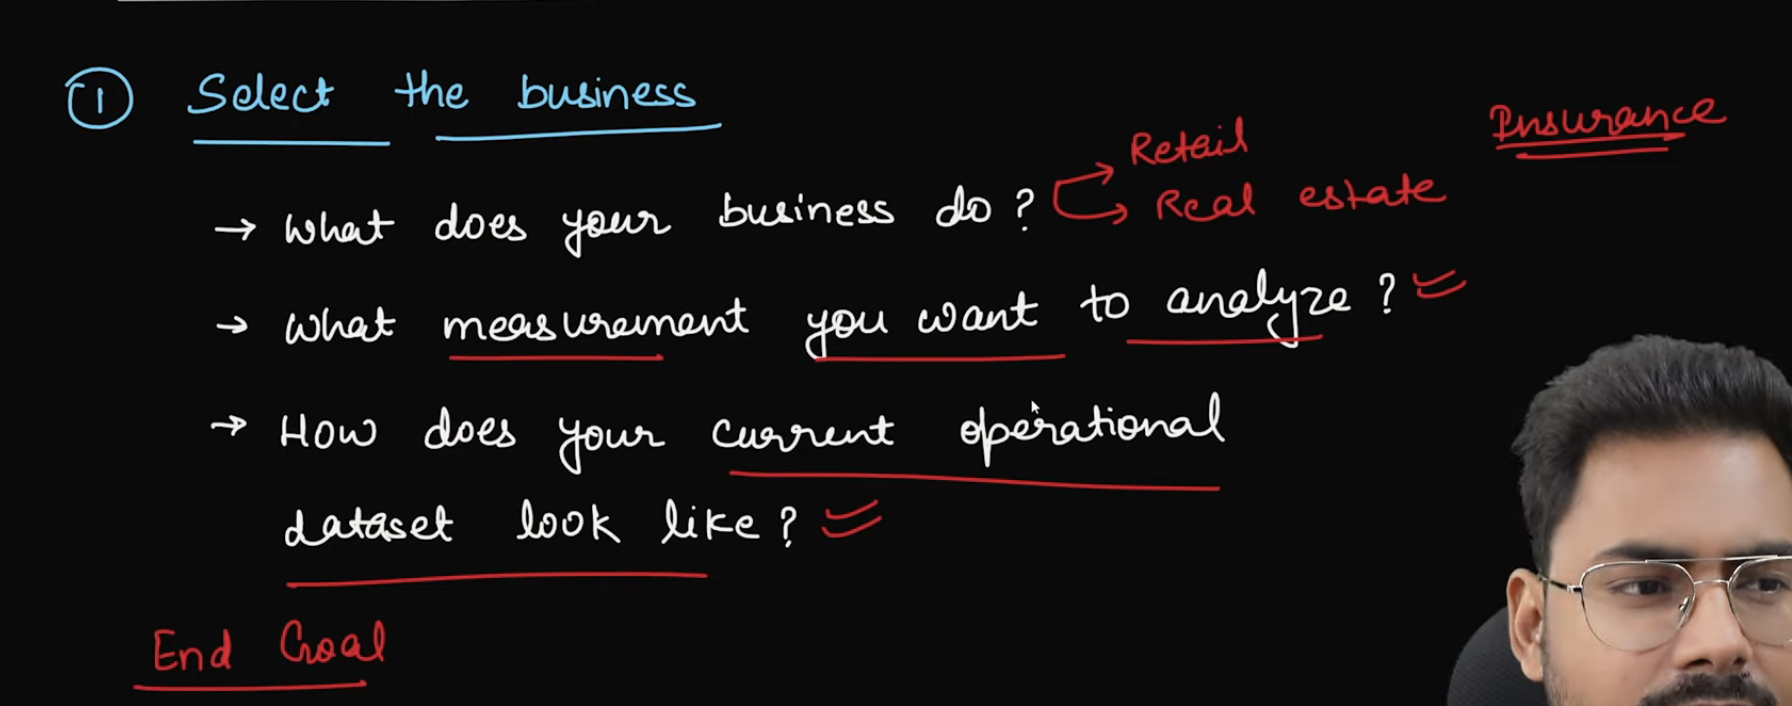 1 Select the business
Insurance
Retail
→ What does your business do?
→ Real estate
→ What measurement you want to analyze?
→ How does your current operational
dataset look like?
End Goal